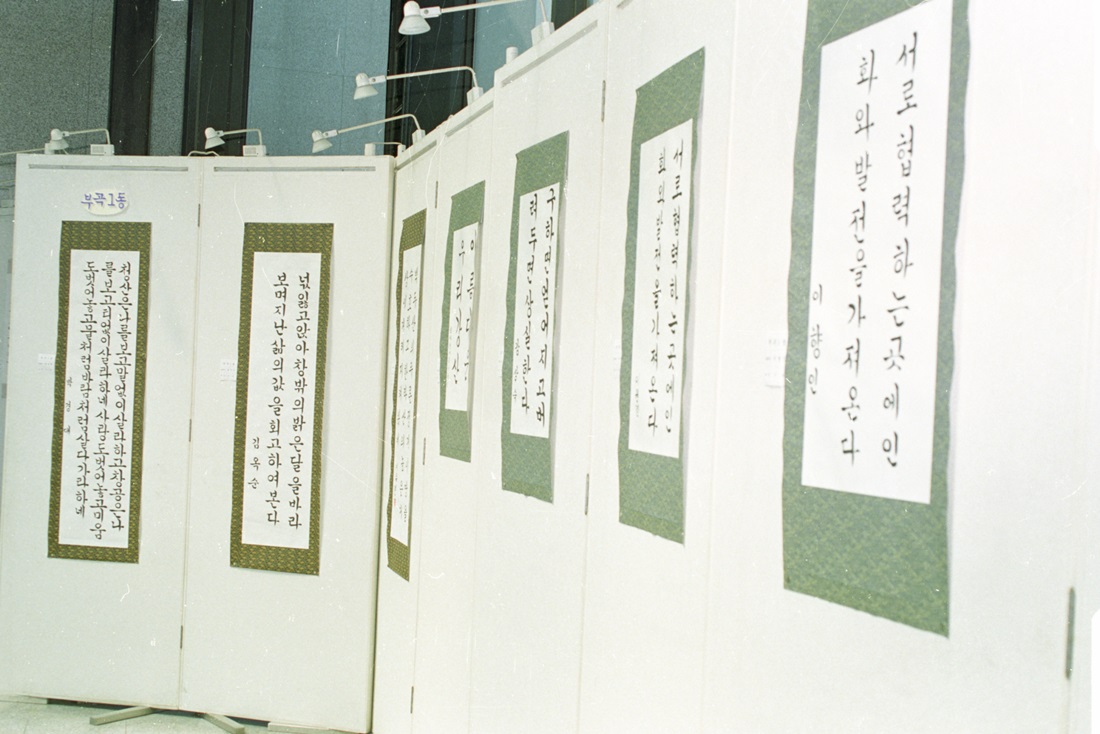 부곡1동
청산은나를보고말없이살라하고창공은나
를보고티없이살라하네사랑도벗어놓고미움
도벗어놓고물처럼바람처럼살다가라하네
넋잃고앉아창밖의밝은달을바라
보며지난삶의값을회고하여본다
김옥순
아름다운
우리강산
구하면얻어지고버
려두면상실한다
서로협력하는곳에인
화와발전을가져온다
서로협력하는곳에인
화와발전을가져온다
이향인